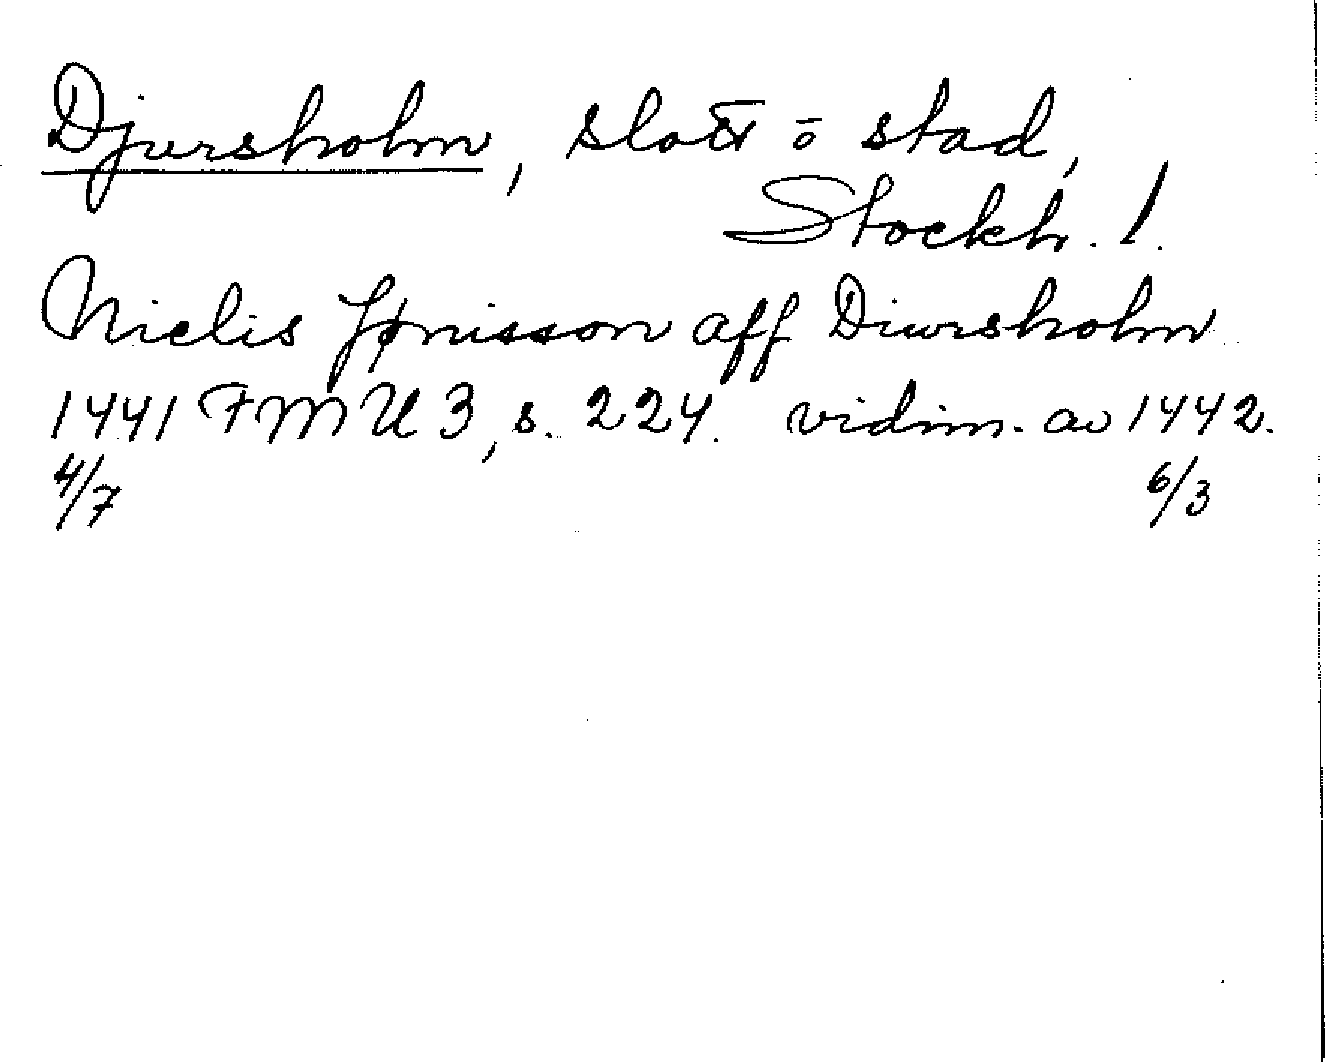 Djursholm, slott ō stad,
Stockh. l.
Nielis Jønisson aff Diursholm
1441 FMU 3, s. 224. vidim. av 1442.
4/7 6/3